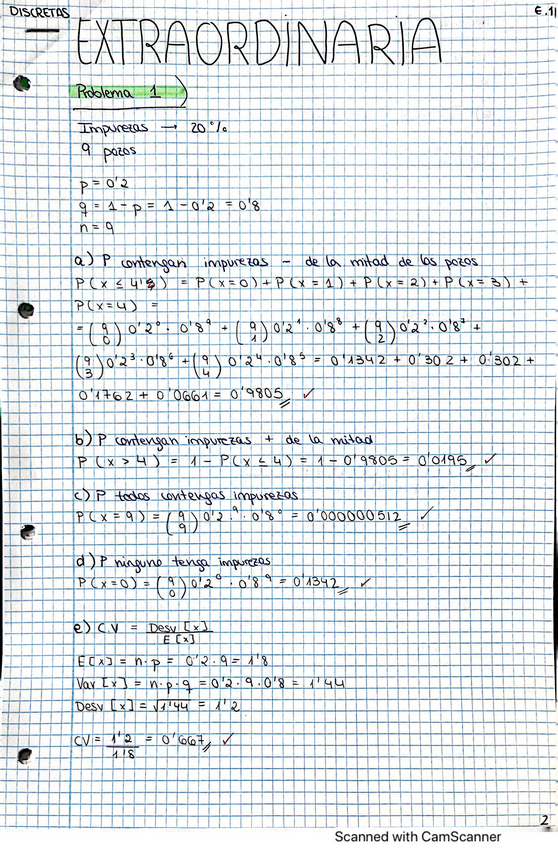 DISCRETAS
E.1
EXTRAORDINARIA
Problema 1
Impurezas → 20%
9 pozos
p = 0'2
q = 1 - p = 1 - 0'2 = 0'8
n = 9
a) P contengan impurezas - de la mitad de los pozos
P(x ≤ 4'5) = P(x=0) + P(x=1) + P(x=2) + P(x=3) +
P(x=4) =
= (9 0) 0'2⁰ · 0'8⁹ + (9 1) 0'2¹ · 0'8⁸ + (9 2) 0'2² · 0'8⁷ +
(9 3) 0'2³ · 0'8⁶ + (9 4) 0'2⁴ · 0'8⁵ = 0'1342 + 0'302 + 0'302 +
0'1762 + 0'0661 = 0'9805 ✓
b) P contengan impurezas + de la mitad
P (x > 4) = 1 - P(x ≤ 4) = 1 - 0'9805 = 0'0195 ✓
c) P todos contengas impurezas
P(x = 9) = (9 9) 0'2⁹ · 0'8⁰ = 0'000000512 ✓
d) P ninguno tenga impurezas
P(x=0) = (9 0) 0'2⁰ · 0'8⁹ = 0'1342 ✓
e) C.V = Desv [x] / E[x]
E[x] = n·p = 0'2 · 9 = 1'8
Var [x] = n·p·q = 0'2 · 9 · 0'8 = 1'44
Desv [x] = √1'44 = 1'2
CV = 1'2 / 1'8 = 0'667 ✓
2
Scanned with CamScanner